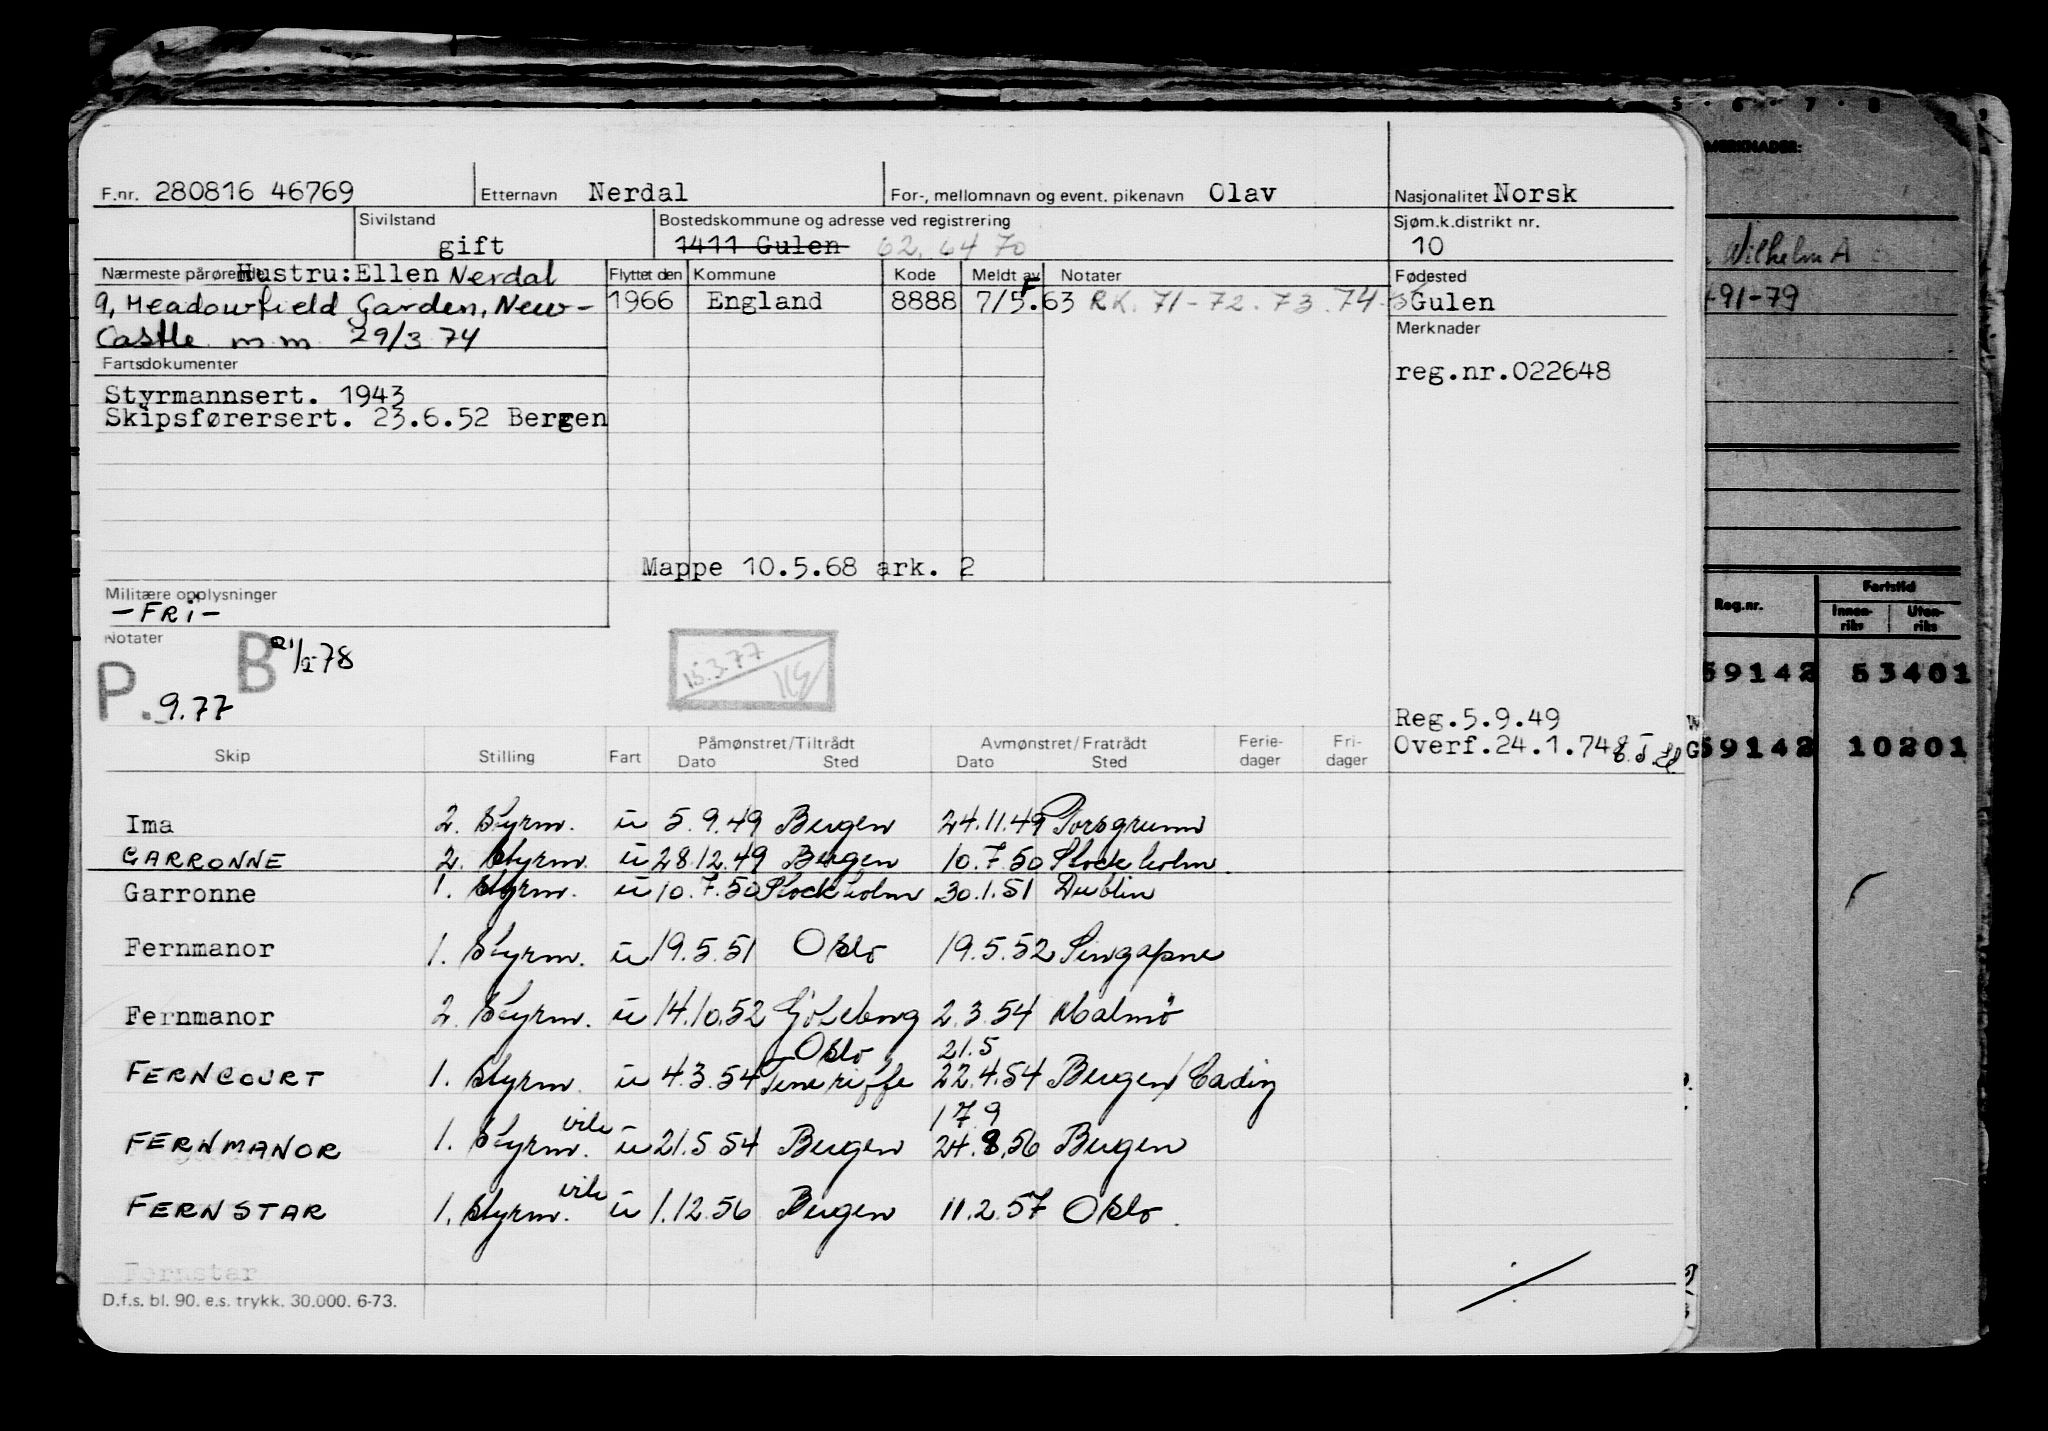 F.nr. 280816 46769 Etternavn Nerdal For-, mellomnavn og event. pikenavn Olav Nasjonalitet Norsk
Sivilstand gift Bostedskommune og adresse ved registrering 1411 Gulen 62. 64 70 Sjøm.k.distrikt nr. 10
Nærmeste pårørende Hustru: Ellen Nerdal Flyttet den Kommune Kode Meldt av Notater Fødested
9, Meadowfield Garden, New- 1966 England 8888 7/5.63 RK. 71-72. 73. 74 Gulen
Castle m m 29/3 74 Merknader
Fartsdokumenter reg.nr.022648
Styrmannsert. 1943
Skipsførersert. 23.6.52 Bergen
Mappe 10.5.68 ark. 2
Militære opplysninger
-FRI-
Notater
P. 9.77 B 78
15.3.77
Reg.5.9.49
Overf.24.1.74
Skip Stilling Fart Påmønstret/Tiltrådt Dato Sted Avmønstret/Fratrådt Dato Sted Ferie-dager Fri-dager
Ima 2. Styrm. u 5.9.49 Bergen 24.11.49 Porsgrunn
GARRONNE 2. Styrm. u 28.12.49 Bergen 10.7.50 Stockholm.
Garronne 1. Styrm. u 10.7.50 Stockholm 30.1.51 Dublin
Fernmanor 1. Styrm. u 19.5.51 Oslo 19.5.52 Singapore
Fernmanor 2. Styrm. u 14.10.52 Göteborg 2.3.54 Malmö
Oslo 21.5
FERNCOURT 1. Styrm. u 4.3.54 Teneriffe 22.4.54 Bergen/Cadiz
17.9
FERNMANOR 1. Styrm. vik u 21.5.54 Bergen 24.8.56 Bergen
FERNSTAR 1. Styrm. vik u 1.12.56 Bergen 11.2.57 Oslo.
Fernstar
D.f.s. bl. 90. e.s. trykk. 30.000. 6-73.
5 6 7 8
MERKNADER:
Wilhelm A
91-79
Reg.nr. Fartstid
Innen-riks Uten-riks
59142 53401
59142 10201